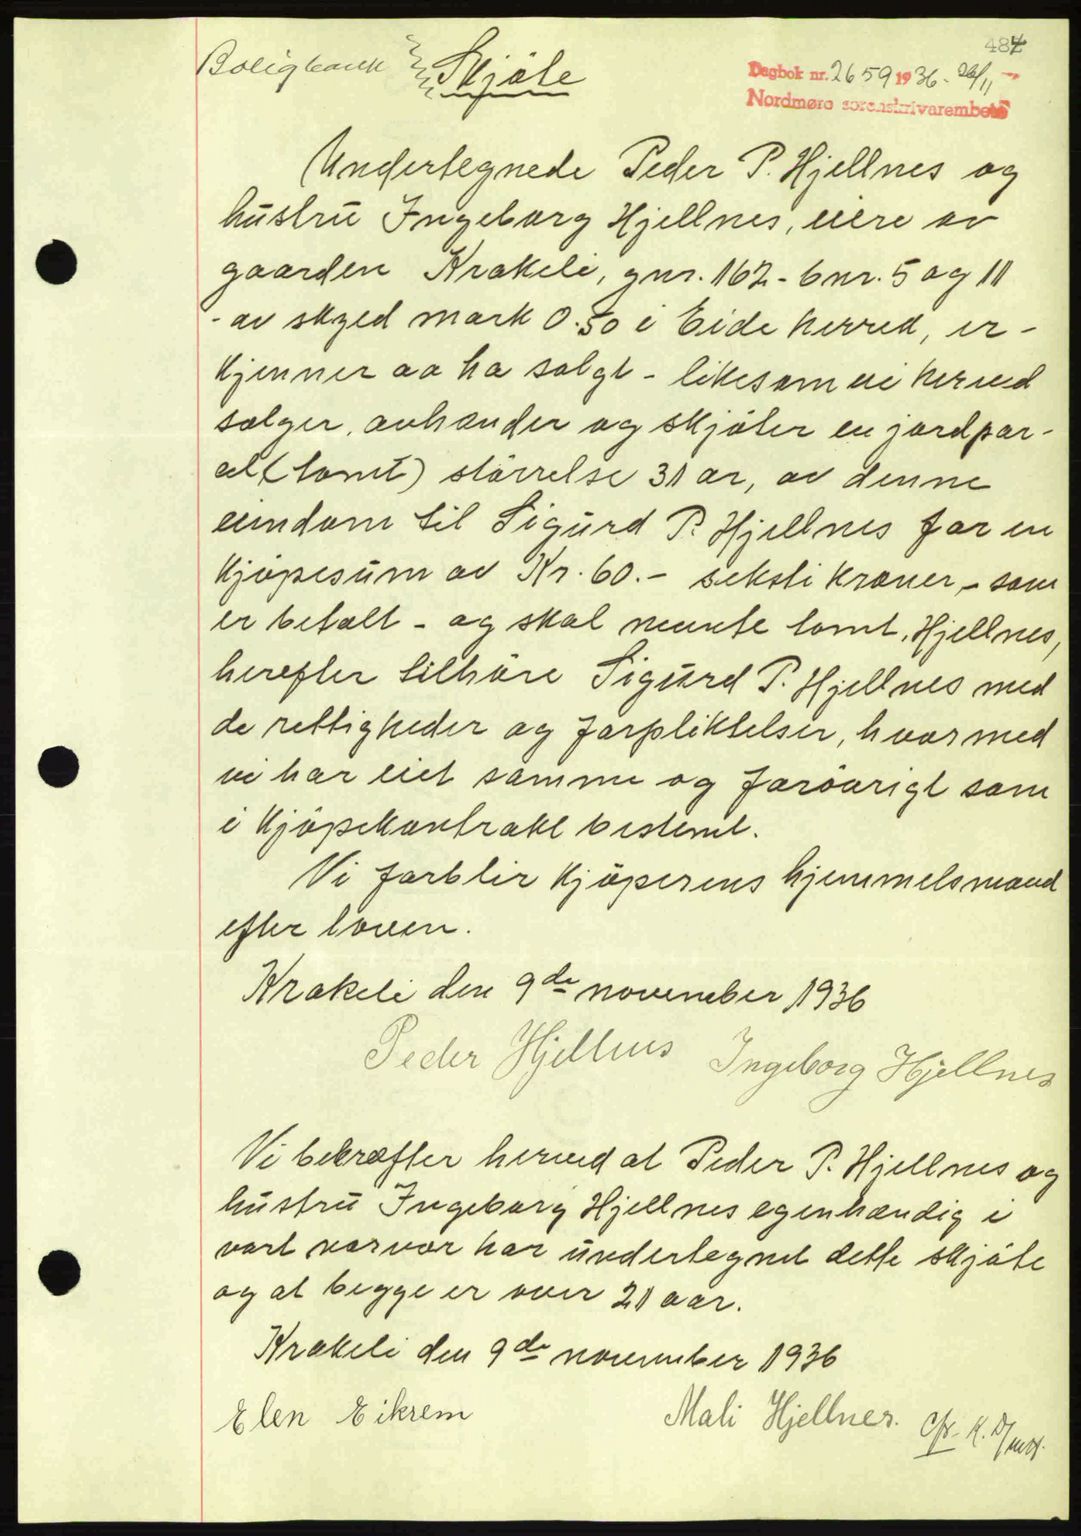 487
Boligbank Skjöte
Dagbok nr. 2659 1936 - 26/11
Nordmøre sorenskrivarembete
Undertegnede Peder P. Hjellnes og
hustru Ingeborg Hjellnes, eiere av
gaarden Krakeli, gnr. 162 - bnr. 5 og 11
- av skyld mark 0.50 i Eide herred, er-
kjenner aa ha solgt - likesom vi herved
sælger, avhænder og skjöter en jordpar-
cel (tomt) störrelse 31 ar, av denne
eiendom til Sigurd P. Hjellnes for en
kjöpesum av Kr. 60.- seksti kroner, - som
er betalt - og skal nevnte tomt, Hjellnes,
herefter tilhöre Sigurd P. Hjellnes med
de rettigheder og forpliktelser, hvormed
vi har eiet samme og forövrigt som
i kjöpekontrakt bestemt.
Vi forblir kjöperens hjemmelsmand
efter loven.
Krakeli den 9de november 1936
Peder Hjellnes Ingeborg Hjellnes
Vi bekræfter herved at Peder P. Hjellnes og
hustru Ingeborg Hjellnes egenhændig i
vort nærvær har undertegnet dette skjöte
og at begge er over 21 aar.
Krakeli den 9de november 1936
Elen Eikrem Mali Hjellnes.